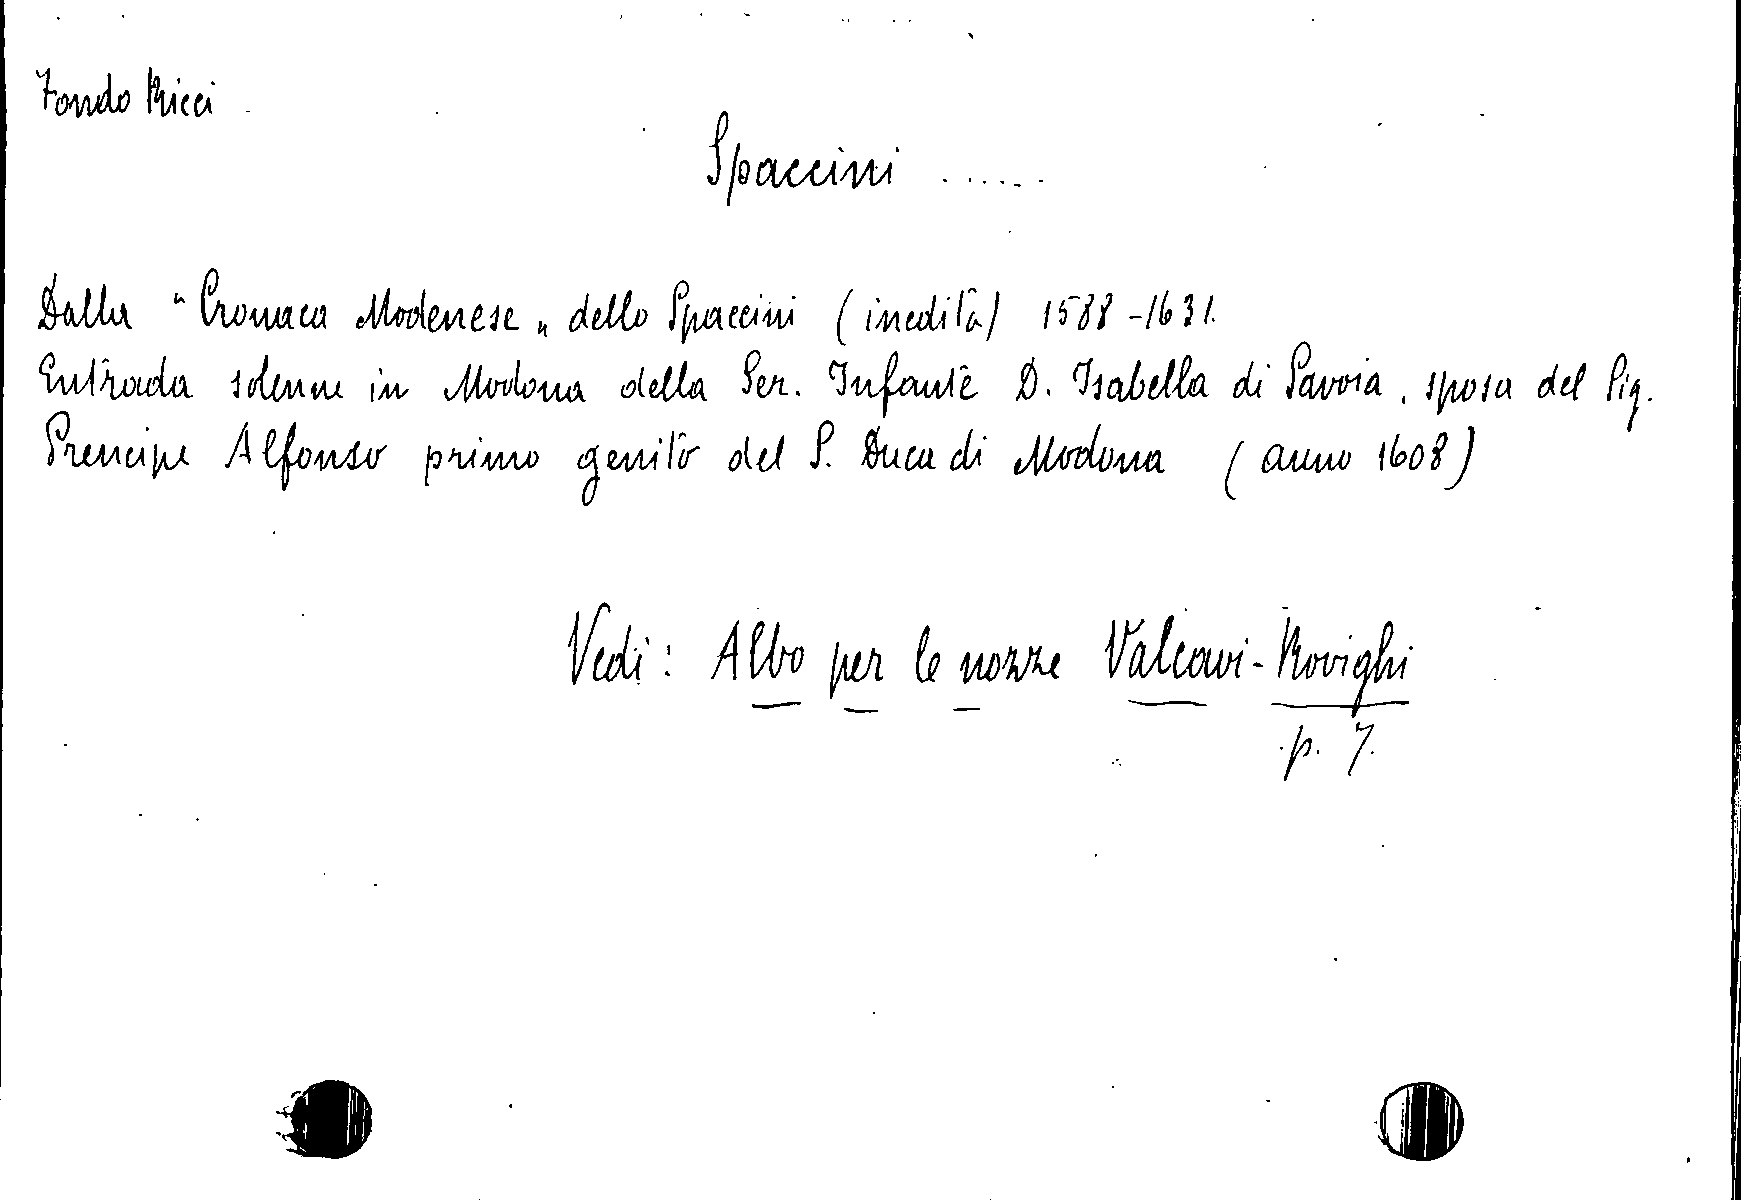 Fondo Ricci
Spaccini ......
Dalla "Cronaca Modenese„ dello Spaccini (inedita) 1588-1631.
Entrada solenne in Modona della Ser. Infante D. Isabella di Savoia, sposa del Sig.
Prencipe Alfonso primo genito del S. Duca di Modona (anno 1608)
Vedi: Albo per le nozze Valcavi-Rovighi
p. 7.